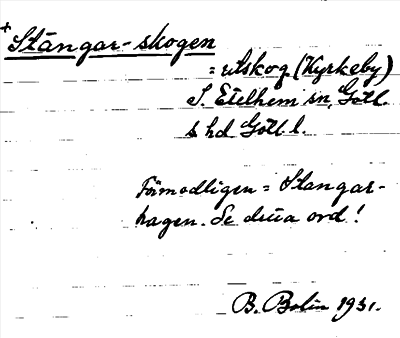 +Stångar-skogen
= utskog (Kyrkeby)
I. Etelhem sn, Gotl.
s hd Gotl. l.
Förmodligen = Stangar-
hagen. Se dessa ord!
B. Bolin 1931.